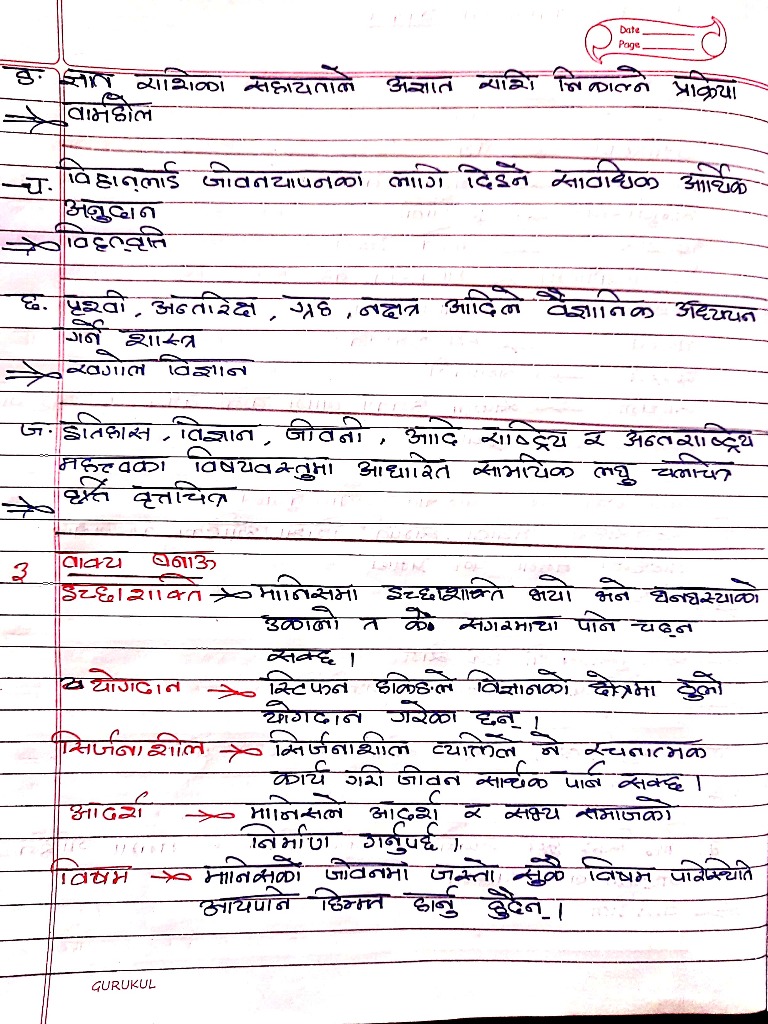 Date
Page
ङ. ज्ञात राशिका सहायताले अज्ञात राशि निकाल्ने प्रक्रिया
→ वार्महोल
च. विद्वान्‌लाई जीवनयापनका लागि दिइने सावधिक आर्थिक
अनुदान
→ विद्वत्‌वृत्ति
छ. पृथ्वी, अन्तरिक्ष, ग्रह, नक्षत्र आदिले वैज्ञानिक अध्ययन
गर्ने शास्त्र
→ खगोल विज्ञान
ज. इतिहास, विज्ञान, जीवनी, आदि राष्ट्रिय र अन्तराष्ट्रिय
महत्त्वका विषयवस्तुमा आधारित सामयिक लघु चलचित्र
→ वृत्तचित्र
३ वाक्य बनाऊ
इच्छाशक्ति → मानिसमा इच्छाशक्ति भयो भने घनघस्याको
उकालो त कै सगरमाथा पनि चढ्न
सक्छ।
योगदान → स्टिफन हकिङले विज्ञानको क्षेत्रमा ठुलो
योगदान गरेका छन्।
सिर्जनाशील → सिर्जनाशील व्यक्तिले नै रचनात्मक
कार्य गरी जीवन सार्थक पार्न सक्छ।
आदर्श → मानिसले आदर्श र सभ्य समाजको
निर्माण गर्नुपर्छ।
विषम → मानिसको जीवनमा जस्तो सुकै विषम परिस्थिति
आयपनि हिम्मत हार्नु हुँदैन्।
GURUKUL